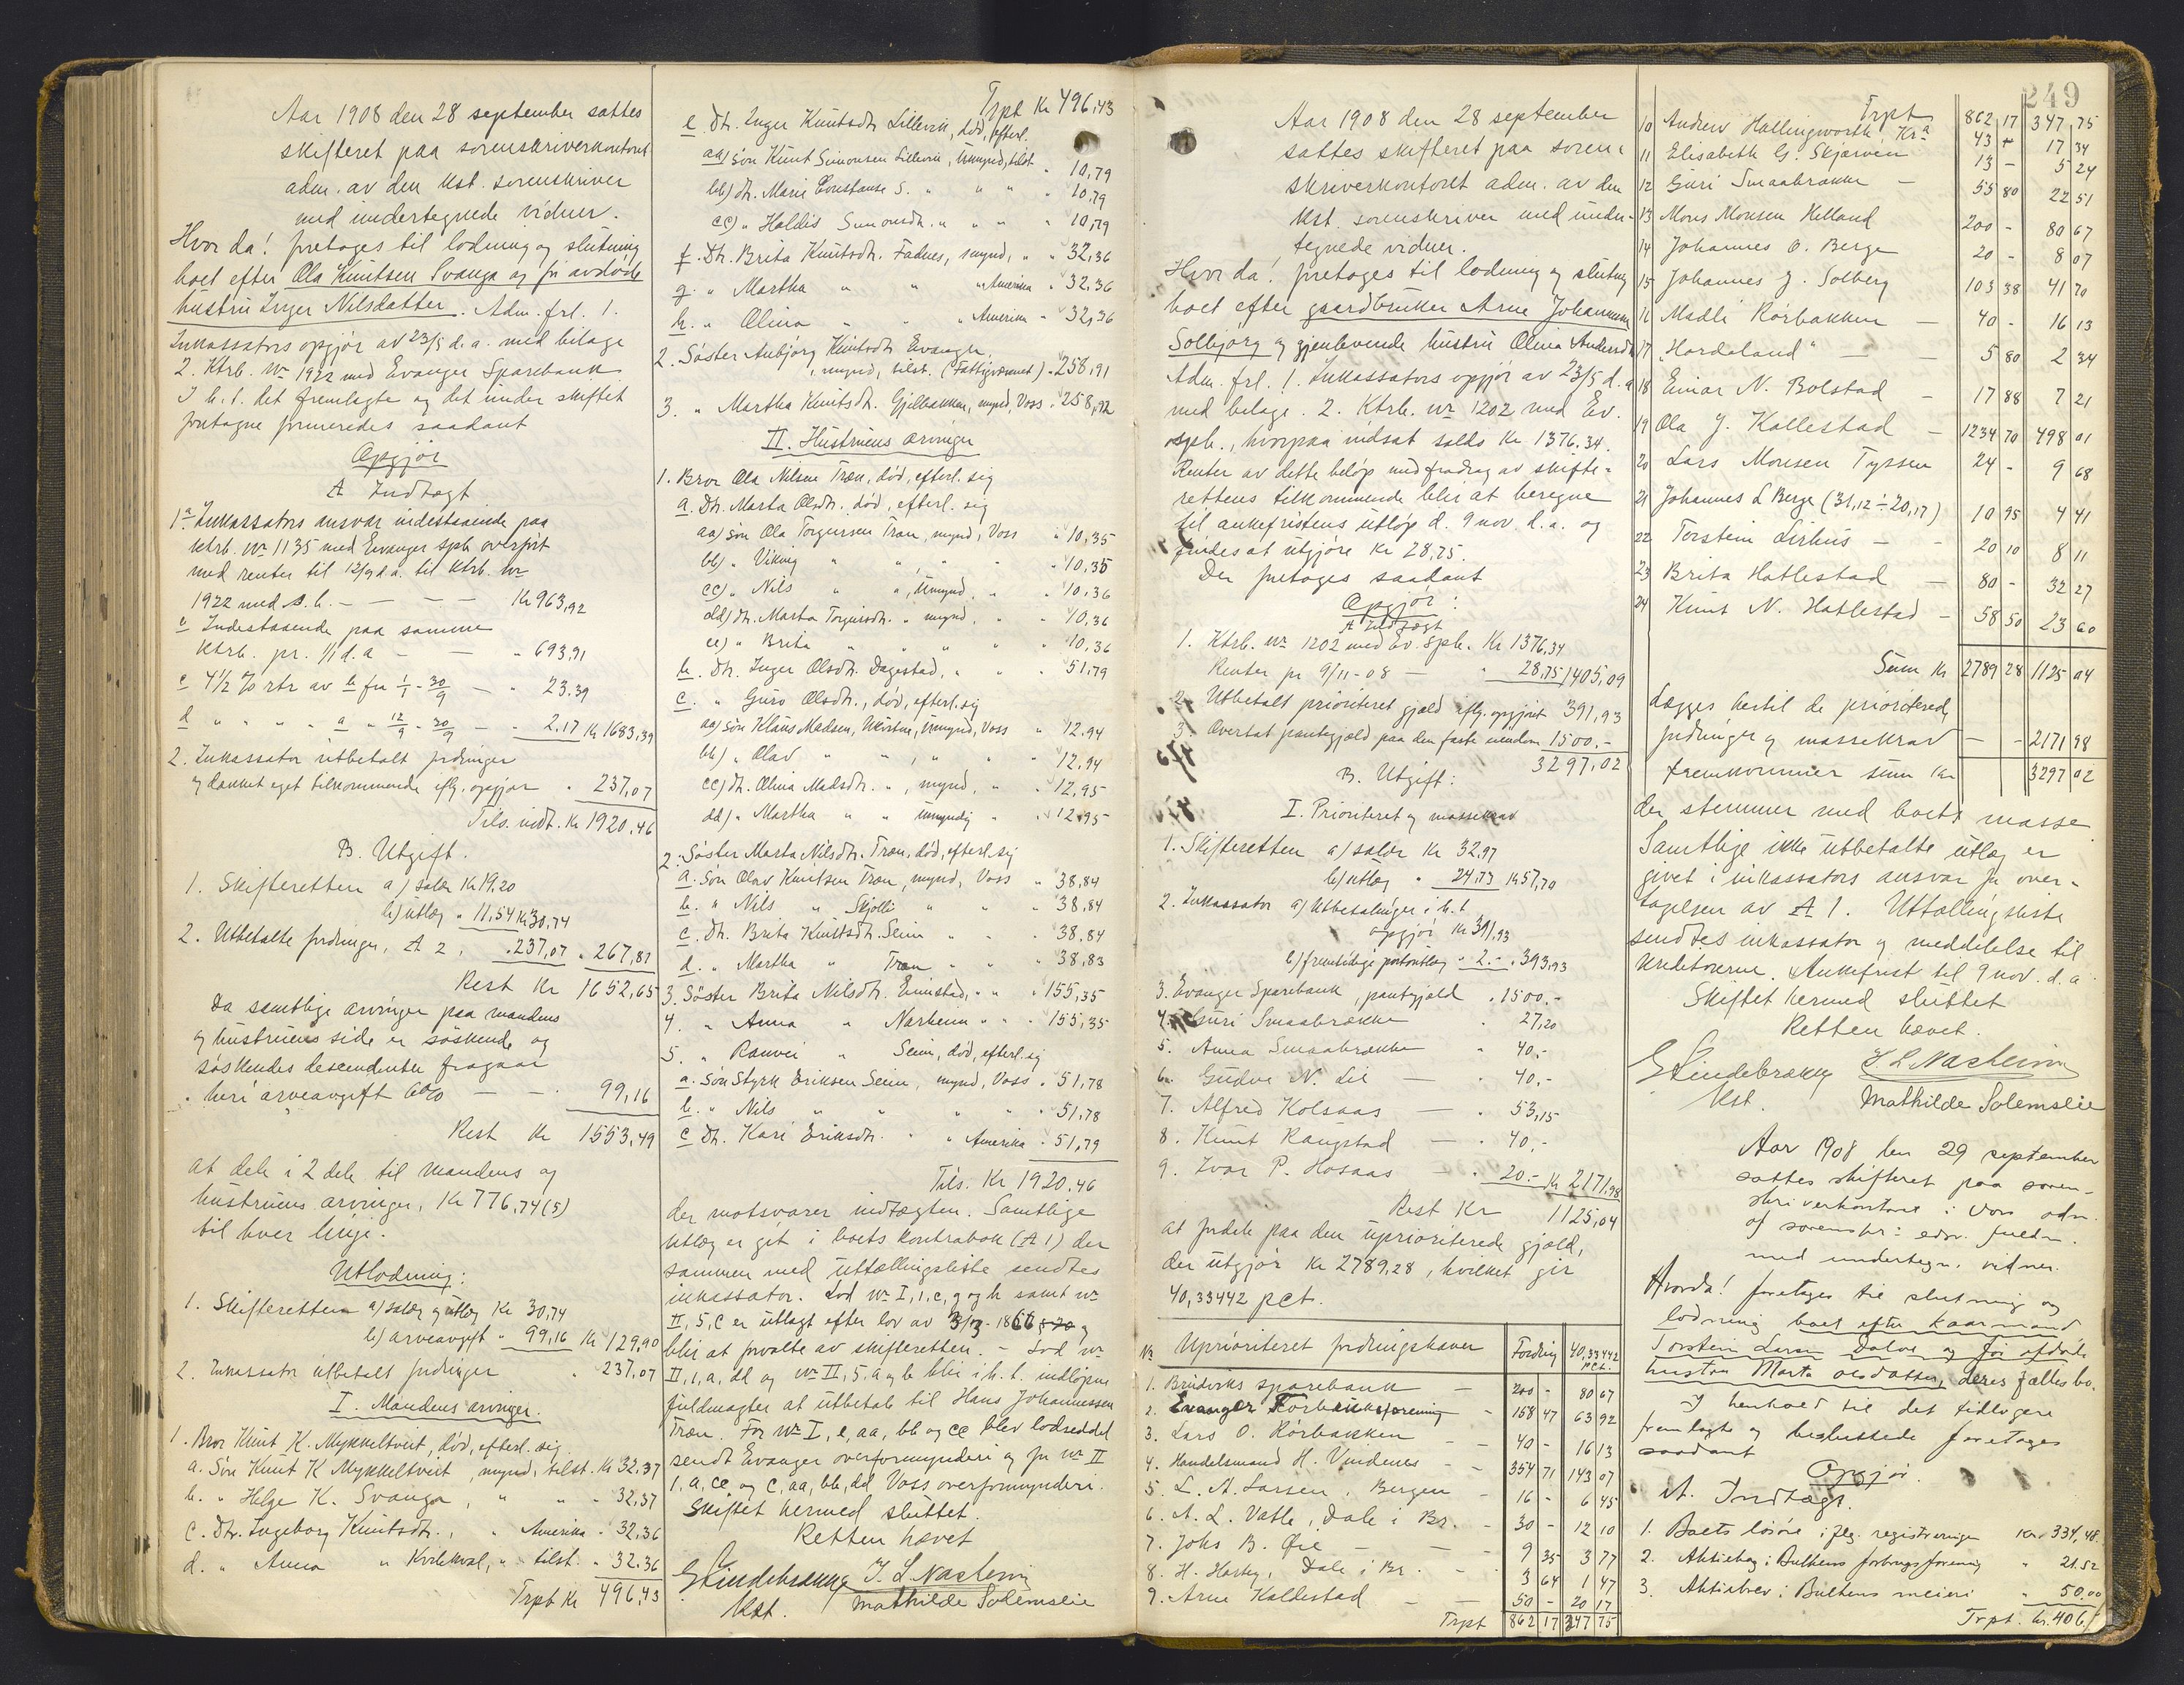 Aar 1908 den 28 september sattes
skifteret paa sorenskriverkontoret
adm. av den kst. sorenskriver
med undertegnede vidner.
Hvor da! foretages til lodning og slutning
boet efter Ola Knutsen Svanga og før avdøde
hustru Inger Nilsdatter. Adm. frl. 1.
Inkassators opgjør av 23/5 d.a. med bilage
2. Ktrb. No 1922 med Evanger Sparebank
I h.t. det fremlagte og det under skiftet
foretagne formeredes saadant
Opgjør
A Indtægt
1a Inkassators ansvar indestaaende paa
ktrb. No 1135 med Evanger spb overført
med renter til 12/9 d.a. til ktrb. No
1922 med s.b. - — — - Kr 963,92
b Indestaaende paa samme
ktrb. pr. 1/1 d.a — — " 693,91
c 4 1/2 % rtr av b fra 1/1 - 30/9 — " 23.39
d " " " " a " 12/9 - 30/9 — " 2,17 Kr 1683,39
2. Inkassator utbetalt fordringer
og dækket eget tilkommende iflg. opgjør " 237,07
Tils. indt. Kr 1920.46
B. Utgift.
1. Skifteretten a) salær Kr 19,20
b) utlæg " 11,54 Kr 30,74
2. Utbetalte fordringer, A 2, " 237,07 " 267,81
Rest Kr 1652,65
Da samtlige arvinger paa mandens
og hustruens side er søskende og
søskendes descendenter fragaar
heri arveavgift 6% — — " 99,16
Rest Kr 1553,49
at dele i 2 dele til mandens og
hustruens arvinger, Kr 776,74(5)
til hver linje.
Utlodning:
1. Skifteretten a) salær og utlæg Kr 30,74
b) arveavgift " 99,16 Kr 129,90
2. Inkassator utbetalt fordringer " 237,07
I. Mandens arvinger.
1. Bror Knut K. Mykkeltveit, død, efterl. sig
a. Søn Knut K Mykkeltveit, mynd, tilst. Kr 32,37
b. " Helge K. Svanga, " " " 32,37
c. Dtr. Ingeborg Knutsdtr., " Amerika " 32,36
d. " Anna " Kvilekval, " tilst. " 32.36
Trpt Kr 496,43
Trpt Kr 496,43
e. Dtr. Inger Knutsdtr Lillevik, død, efterl.
aa) søn Knut Simonsen Lillevik, Umynd, tilst. " 10,79
bb) dtr. Marie Constanse S. " " " " 10,79
cc) " Haldis Simonsdtr. " " " " 10,79
f. Dtr. Brita Knutsdtr. Fadnes, mynd, " " 32,36
g. " Martha " " " Amerika " 32,36
h. " Olina " " " Amerika " 32,36
2. Søster Anbjørg Knutsdtr Evanger,
, mynd, tilst. (Fattigvæsenet) " 258,91
3. " Martha Knutsdtr. Gjelbakken, mynd, Voss " 258,92
II. Hustruens arvinger
1. Bror Ola Nilsen Træn, død, efterl. sig
a. Dtr. Marta Olsdtr., død, efterl. sig
aa) søn Ola Torgersen Træn, mynd, Voss " 10,35
bb) " Viking " " , " " " 10,35
cc) " Nils " ", Umynd, " " 10,36
dd) dtr. Marta Torgersdtr. " mynd, " " 10,36
ee) " Brita " " " " " 10,36
b. Dtr. Inger Olsdtr. Dagestad, " " " 51,79
c. " Guro Olsdtr., død, efterl. sig
aa) søn Klaus Madsen, Ukvitne, Umynd, Voss " 12.94
bb) " Olav " ", " " " 12,94
cc) dtr. Olina Madsdtr. ", mynd, " " 12,95
dd) " Martha " " Umyndig " " 12,95
2. Søster Marta Nilsdtr. Træn, død, efterl. sig
a. Søn Olav Knutsen Træn, mynd, Voss " 38,84
b. " Nils " Skjelli " " " 38,84
c. Dtr. Brita Knutsdtr. Seim " " " 38,84
d. " Martha " Træn " " " 38,83
3. Søster Brita Nilsdtr. Eimstad, " " " 155,35
4. " Anna " Narheim " " " 155,35
5. " Ranvei " Seim, død, efterl. sig
a. Søn Styrk Eriksen Seim, mynd, Voss " 51,78
b. " Nils " " " " " 51,78
c Dtr. Kari Eriksdtr. " " Amerika " 51,79
Tils. Kr 1920.46
der motsvarer indtægten. Samtlige
utlæg er git i boets kontrabok (A 1) der
sammen med uttællingsliste sendtes
inkassator. Lod No I, 1, c, g og h samt No
II, 5, C er utlagt efter lov av 3/3-1866 og
blir at forvalte av skifteretten. - Lod No
II, 1, a, dd og No II, 5. a og b blir i h. t. indløpne
fuldmagter at utbetale til Hans Johannessen
Træn. For No I, e, aa, bb og cc blev lodseddel
sendt Evanger overformynderi og for No II
1, a, cc, og c, aa, bb, dd Voss overformynderi.
Skiftet hermed sluttet.
Retten hævet
G Lindebrække J. L. Nasheim
Kst. Mathilde Solemslie
Aar 1908 den 28 september
sattes skifteret paa soren-
skriverkontoret adm. av den
kst. sorenskriver med under-
tegnede vidner.
Hvor da! foretages til lodning og slutning
boet efter gaardbruker Arne Johannessen
Solbjørg og gjenlevende hustru Olina Andersdtr
Adm. frl. 1. Inkassators opgjør av 23/5 d.a
med bilage. 2. Ktrb. No 1202 med Ev.
spb., hvorpaa indsat saldo Kr 1376.34.
Renter av dette beløp med fradrag av skifte-
rettens tilkommende blir at beregne
til ankefristens utløp d. 9 nov. d.a. og
findes at utgjøre Kr 28,75.
Der foretages saadant
Opgjør:
A Indtægt
1. Ktrb. No 1202 med Ev. spb. Kr 1376,34
Renter pr 9/11-08 — " 28,75 1405,09
2. Utbetalt prioriteret gjæld iflg. opgjøret 391,93
3. Overtat pantegjæld paa den faste eiendom 1500.-
3297,02
B. Utgift:
I. Prioriteret og massekrav
1. Skifteretten a) salær Kr 32,97
b) utlæg " 24,73 Kr 57,70
2. Inkassator a) Utbetalinger i h.t
opgjør Kr 391,93
b) fremtidige portoutlæg " 2.- " 393,93
3. Evanger Sparebank, pantegjæld " 1500.-
4. Guri Smaabrække " 27,20
5. Anna Smaabrække " 40,-
6. Gudve N. Lie — " 40,-
7. Alfred Kolsaas — " 53,15
8. Knut Raugstad — " 40,-
9. Ivar P. Hosaas — " 20.- Kr 2171,98
Rest Kr 1125,04
at fordele paa den uprioriterede gjæld,
der utgjør Kr 2789,28, hvilket gir
40,33442 pct.
No Uprioriteret fordringshaver Fordring 40,33442 pct.
1. Bruviks sparebank — 200 - 80 67
2. Evanger Forbruksforening - 158 47 63 92
3. Lars O. Rørbakken - - 40 - 16 13
4. Handelsmand H. Vindenes - - 354 71 143 07
5. L. A. Larsen, Bergen - 16 - 6 45
6. A. L. Vatle, Dale i Br. - 30 - 12 10
7. Johs B. Øie — — 9 35 3 77
8. H. Hartey, Dale i Br. - - 3 64 1 47
9. Arne Kaldestad — — 50 - 20 17
Trpt 862 17 347 75
249
Trpt 862 17 347 75
10 Andrew Hallingworth Kra 43 - 17 34
11 Elisabeth G. Skjerven 13 - 5 24
12 Guri Smaabrække — 55 80 22 51
13 Mons Monsen Helland 200 - 80 67
14 Johannes O. Berge 20 - 8 07
15 Johannes J. Solberg 103 38 41 70
16 Madli Rørbakken — 40 - 16 13
17 "Hordaland" — — 5 80 2 34
18 Einar N. Bolstad — 17 88 7 21
19 Ola J. Kallestad — 1234 70 498 01
20 Lars Monsen Tyssen 24 - 9 68
21 Johannes L Berge (31,12 ÷ 20,17) 10 95 4 41
22 Torstein Lirhus - - 20 10 8 11
23 Brita Hatlestad — 80 - 32 27
24 Knut N. Hatlestad - 58 50 23 60
Sum Kr 2789 28 1125 04
Lægges hertil de prioriterede
fordringer og massekrav — - 2171 98
fremkommer sum Kr 3297 02
der stemmer med boets masse
Samtlige ikke utbetalte utlæg er
givet i inkassators ansvar for over-
tagelsen av A 1. Uttællingsliste
sendtes inkassator og meddelelse til
kreditorerne. Ankefrist til 9 nov. d. a.
Skiftet hermed sluttet
Retten hævet.
G Lindebrække J. L. Nasheim
Kst. Mathilde Solemslie
Aar 1908 den 29 september
sattes skifteret paa soren-
skriverkontoret i Voss adm.
af sorenskr: edsv. fuldm.
med undertegn. vidner.
Hvorda! foretages til slutning og
lodning boet efter kaarmand
Torstein Larsen Dalve og før afdøde
hustru Marta Olsdatter, deres fælles bo.
I henhold til det tidligere
fremlagte og besluttede foretages
saadant
Opgjør.
A. Indtægt.
1. Boets løsøre iflg. registreringen Kr. 334,48.
2. Aktiebog i Bulkens forbrugsforening " 21.52
3. Aktiebrev i Bulkens meieri " 50,00
Trpt. kr. 406,